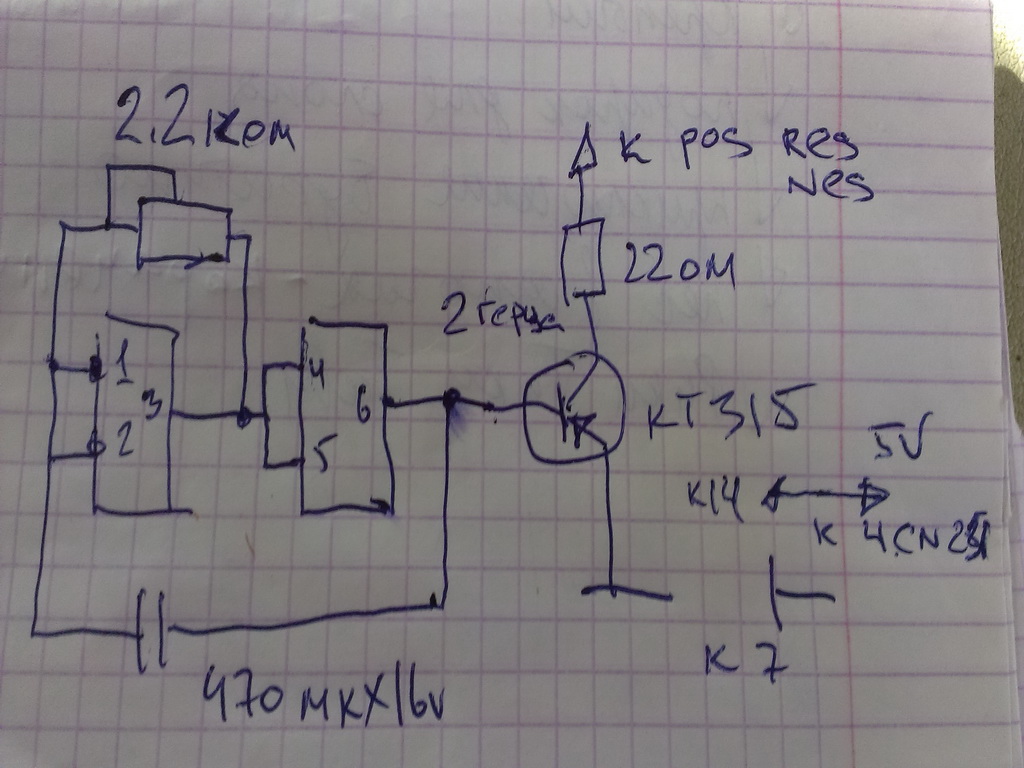 2.2 ком
к pos Res
Nes
22 ом
2 герца
1
2
3
4
5
6
КТ315
5V
К14
К 7
470 мкХ16v